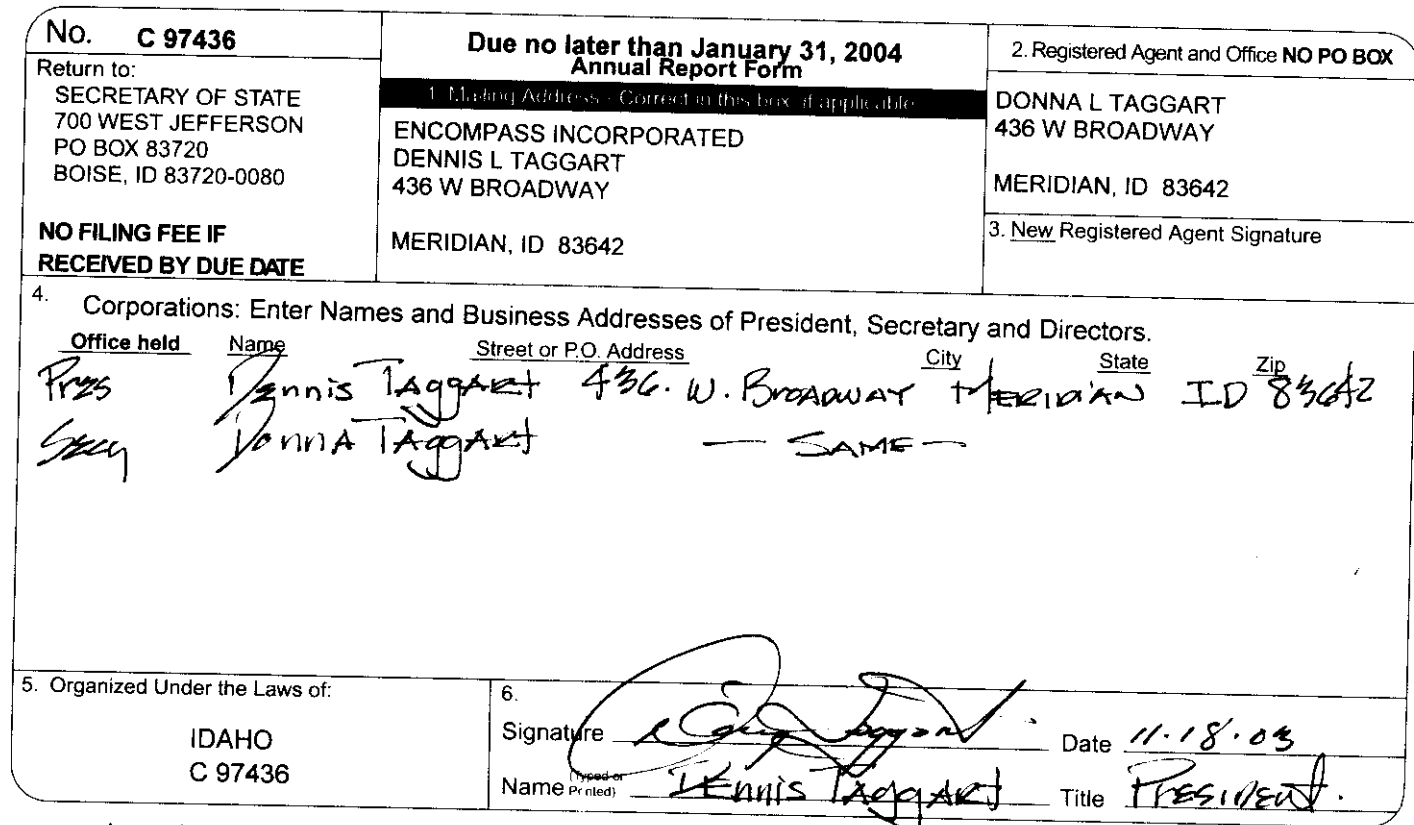 No. C 97436
Return to:
SECRETARY OF STATE
700 WEST JEFFERSON
PO BOX 83720
BOISE, ID 83720-0080
NO FILING FEE IF
RECEIVED BY DUE DATE
Due no later than January 31, 2004
Annual Report Form
1. Mailing Address - Correct in this box, if applicable
ENCOMPASS INCORPORATED
DENNIS L TAGGART
436 W BROADWAY
MERIDIAN, ID 83642
2. Registered Agent and Office NO PO BOX
DONNA L TAGGART
436 W BROADWAY
MERIDIAN, ID 83642
3. New Registered Agent Signature
4. Corporations: Enter Names and Business Addresses of President, Secretary and Directors.
Office held Name Street or P.O. Address City State Zip
Pres Dennis Taggart 436. W. Broadway Meridian ID 83642
Secy Donna Taggart — Same —
5. Organized Under the Laws of:
IDAHO
C 97436
6.
Signature Date 11.18.03
Name (Typed or Printed) Dennis Taggart Title President.